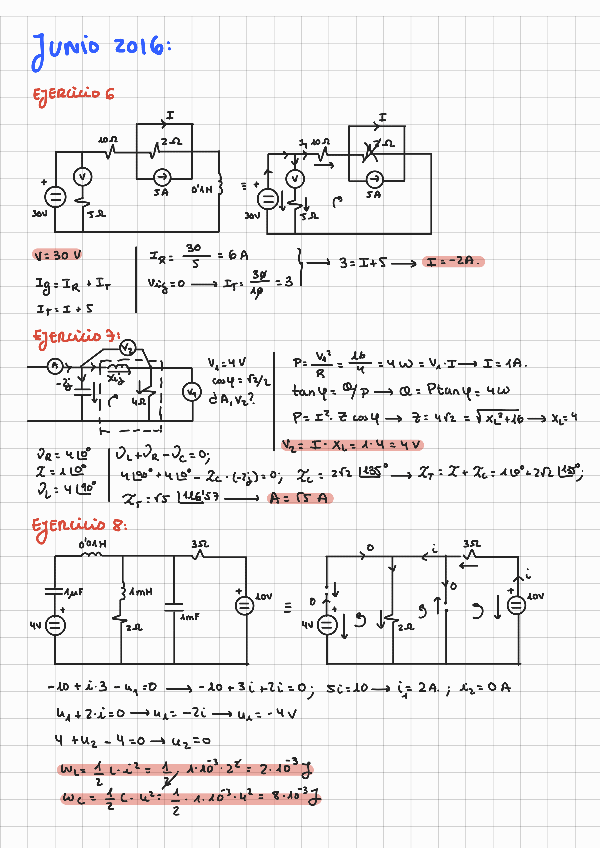 Junio 2016:
EJERCICIO 6
I
10Ω
2Ω
V
5A
30V
5Ω
0'1H
≡
I
I₁ 10Ω
2Ω
V
5A
30V
5Ω
V = 30 V
Ig = I_R + I_T
I_T = I + 5
I_R = 30/5 = 6 A
V_Lg = 0 → I_T = 30/10 = 3
→ 3 = I + 5 → I = -2A.
EJERCICIO 7:
A
V₂
-2j
X_L j
4Ω
V₁
V₁ = 4 V
cos φ = √2/2
¿A, V₂?
P = V₁²/R = 16/4 = 4 W = V₁ · I → I = 1A.
tan φ = Q/P → Q = P tan φ = 4 W
P = I² · Z cos φ → Z = 4√2 = √X_L² + 16 → X_L = 4
V₂ = I · X_L = 1 · 4 = 4 V
V_R = 4 |0°
I = 1 |0°
V_L = 4 |90°
V_L + V_R - V_C = 0;
4|90° + 4|0° - I_C · (-2j) = 0; I_C = 2√2 |135° → I_T = I + I_C = 1|0° + 2√2 |135°;
I_T = √5 |116'57 → A = √5 A
EJERCICIO 8:
0'01H
3Ω
1μF
1mH
1mF
10V
4V
2Ω
≡
0
i
3Ω
0
0
i
10V
4V
2Ω
-10 + i·3 - u₁ = 0 → -10 + 3i + 2i = 0; 5i = 10 → i₁ = 2A.; i₂ = 0 A
u₁ + 2·i = 0 → u₁ = -2i → u₁ = -4 V
4 + u₂ - 4 = 0 → u₂ = 0
W_L = 1/2 L · i² = 1/2 · 1·10⁻³ · 2² = 2·10⁻³ J
W_C = 1/2 C · u² = 1/2 · 1·10⁻³ · 4² = 8·10⁻³ J